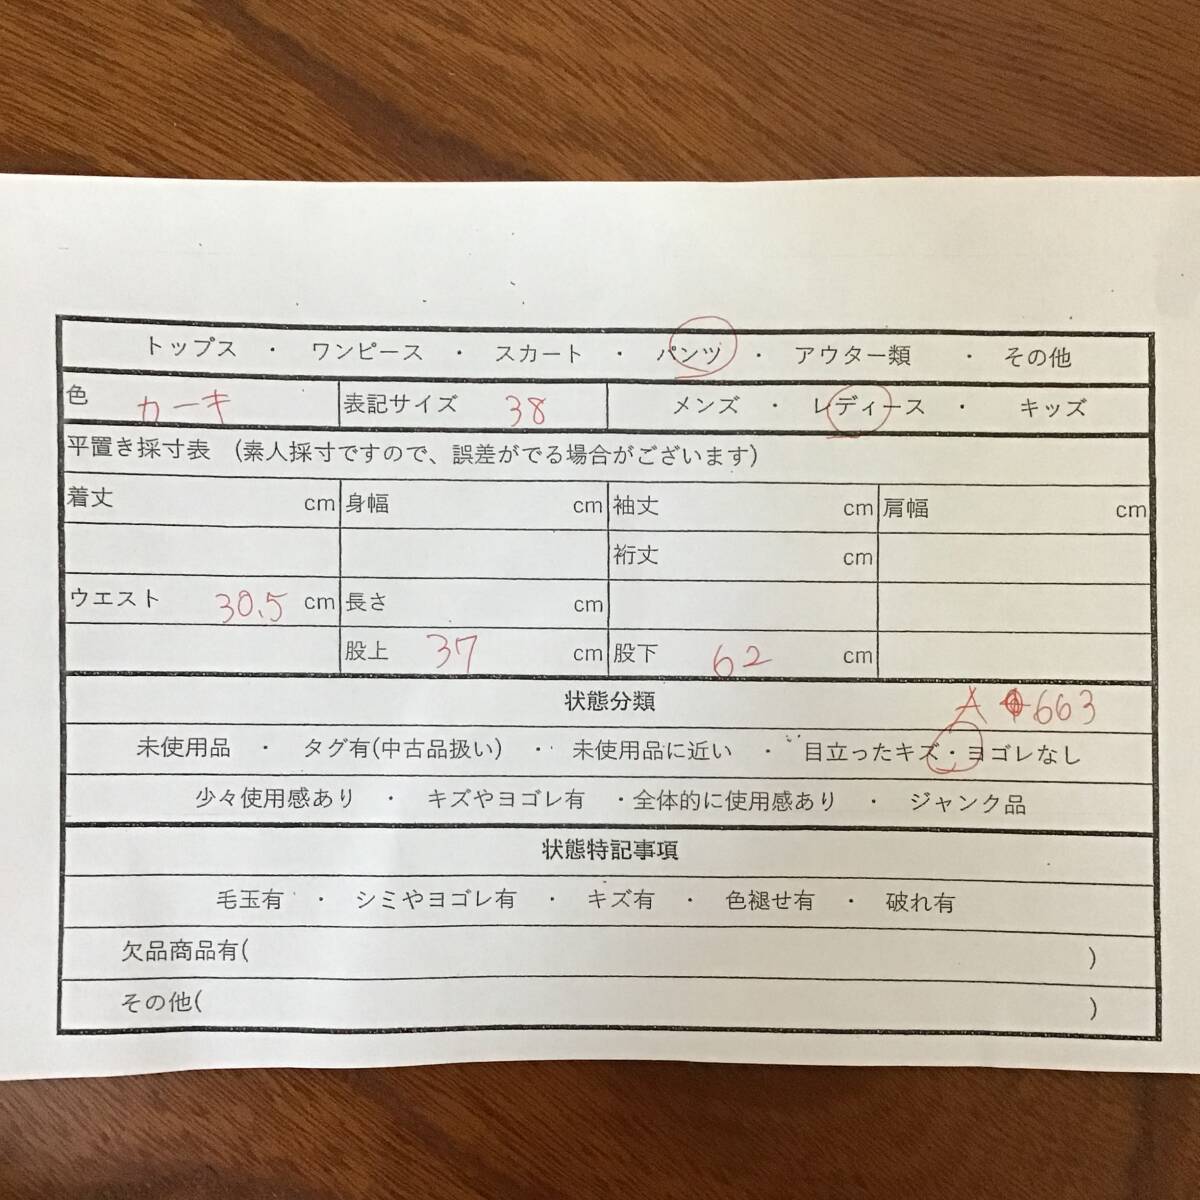 トップス ・ ワンピース ・ スカート ・ パンツ ・ アウター類 ・ その他
色 カーキ 表記サイズ 38 メンズ ・ レディース ・ キッズ
平置き採寸表 (素人採寸ですので、誤差がでる場合がございます)
着丈 cm 身幅 cm 袖丈 cm 肩幅 cm
裄丈 cm
ウエスト 30.5 cm 長さ cm
股上 37 cm 股下 62 cm
状態分類 A 663
未使用品 ・ タグ有(中古品扱い) ・ 未使用品に近い ・ 目立ったキズ・ヨゴレなし
少々使用感あり ・ キズやヨゴレ有 ・全体的に使用感あり ・ ジャンク品
状態特記事項
毛玉有 ・ シミやヨゴレ有 ・ キズ有 ・ 色褪せ有 ・ 破れ有
欠品商品有( )
その他( )